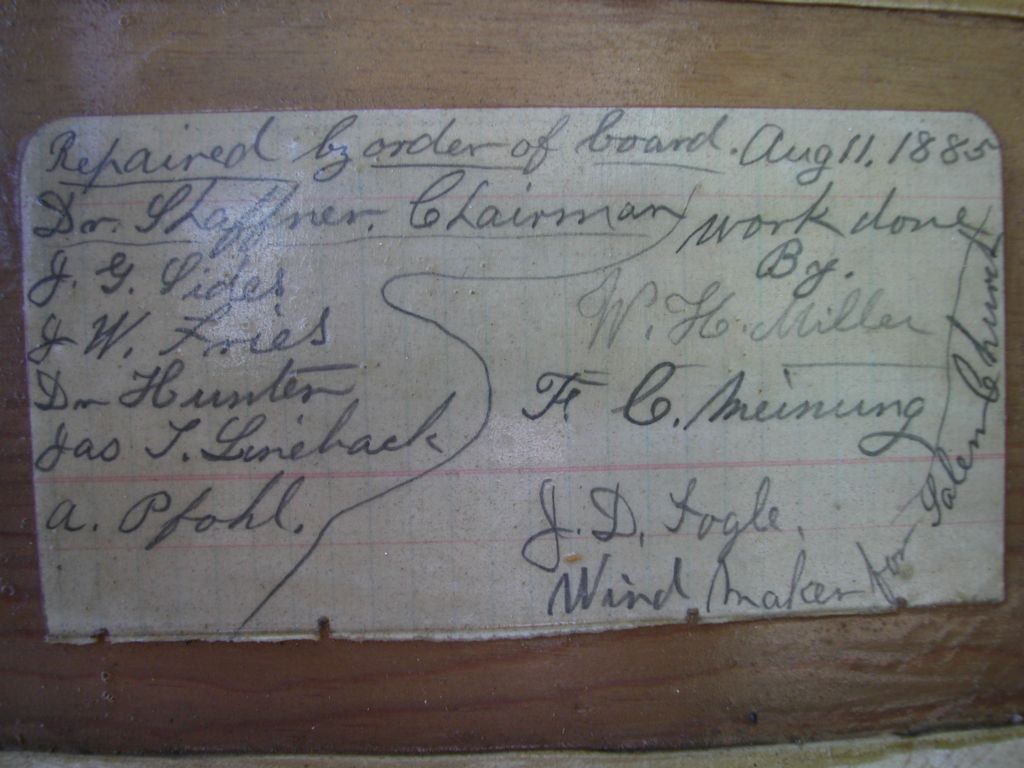 Repaired by order of board. Aug 11. 1885
Dr. Shaffner. Chairman
J. G. Sides
J W. Fries
Dr Hunter
Jas T. Lineback
A. Pfohl.
work done
By.
W. H. Miller
F. C. Meinung
J. D. Fogle.
Wind maker for Salem Church